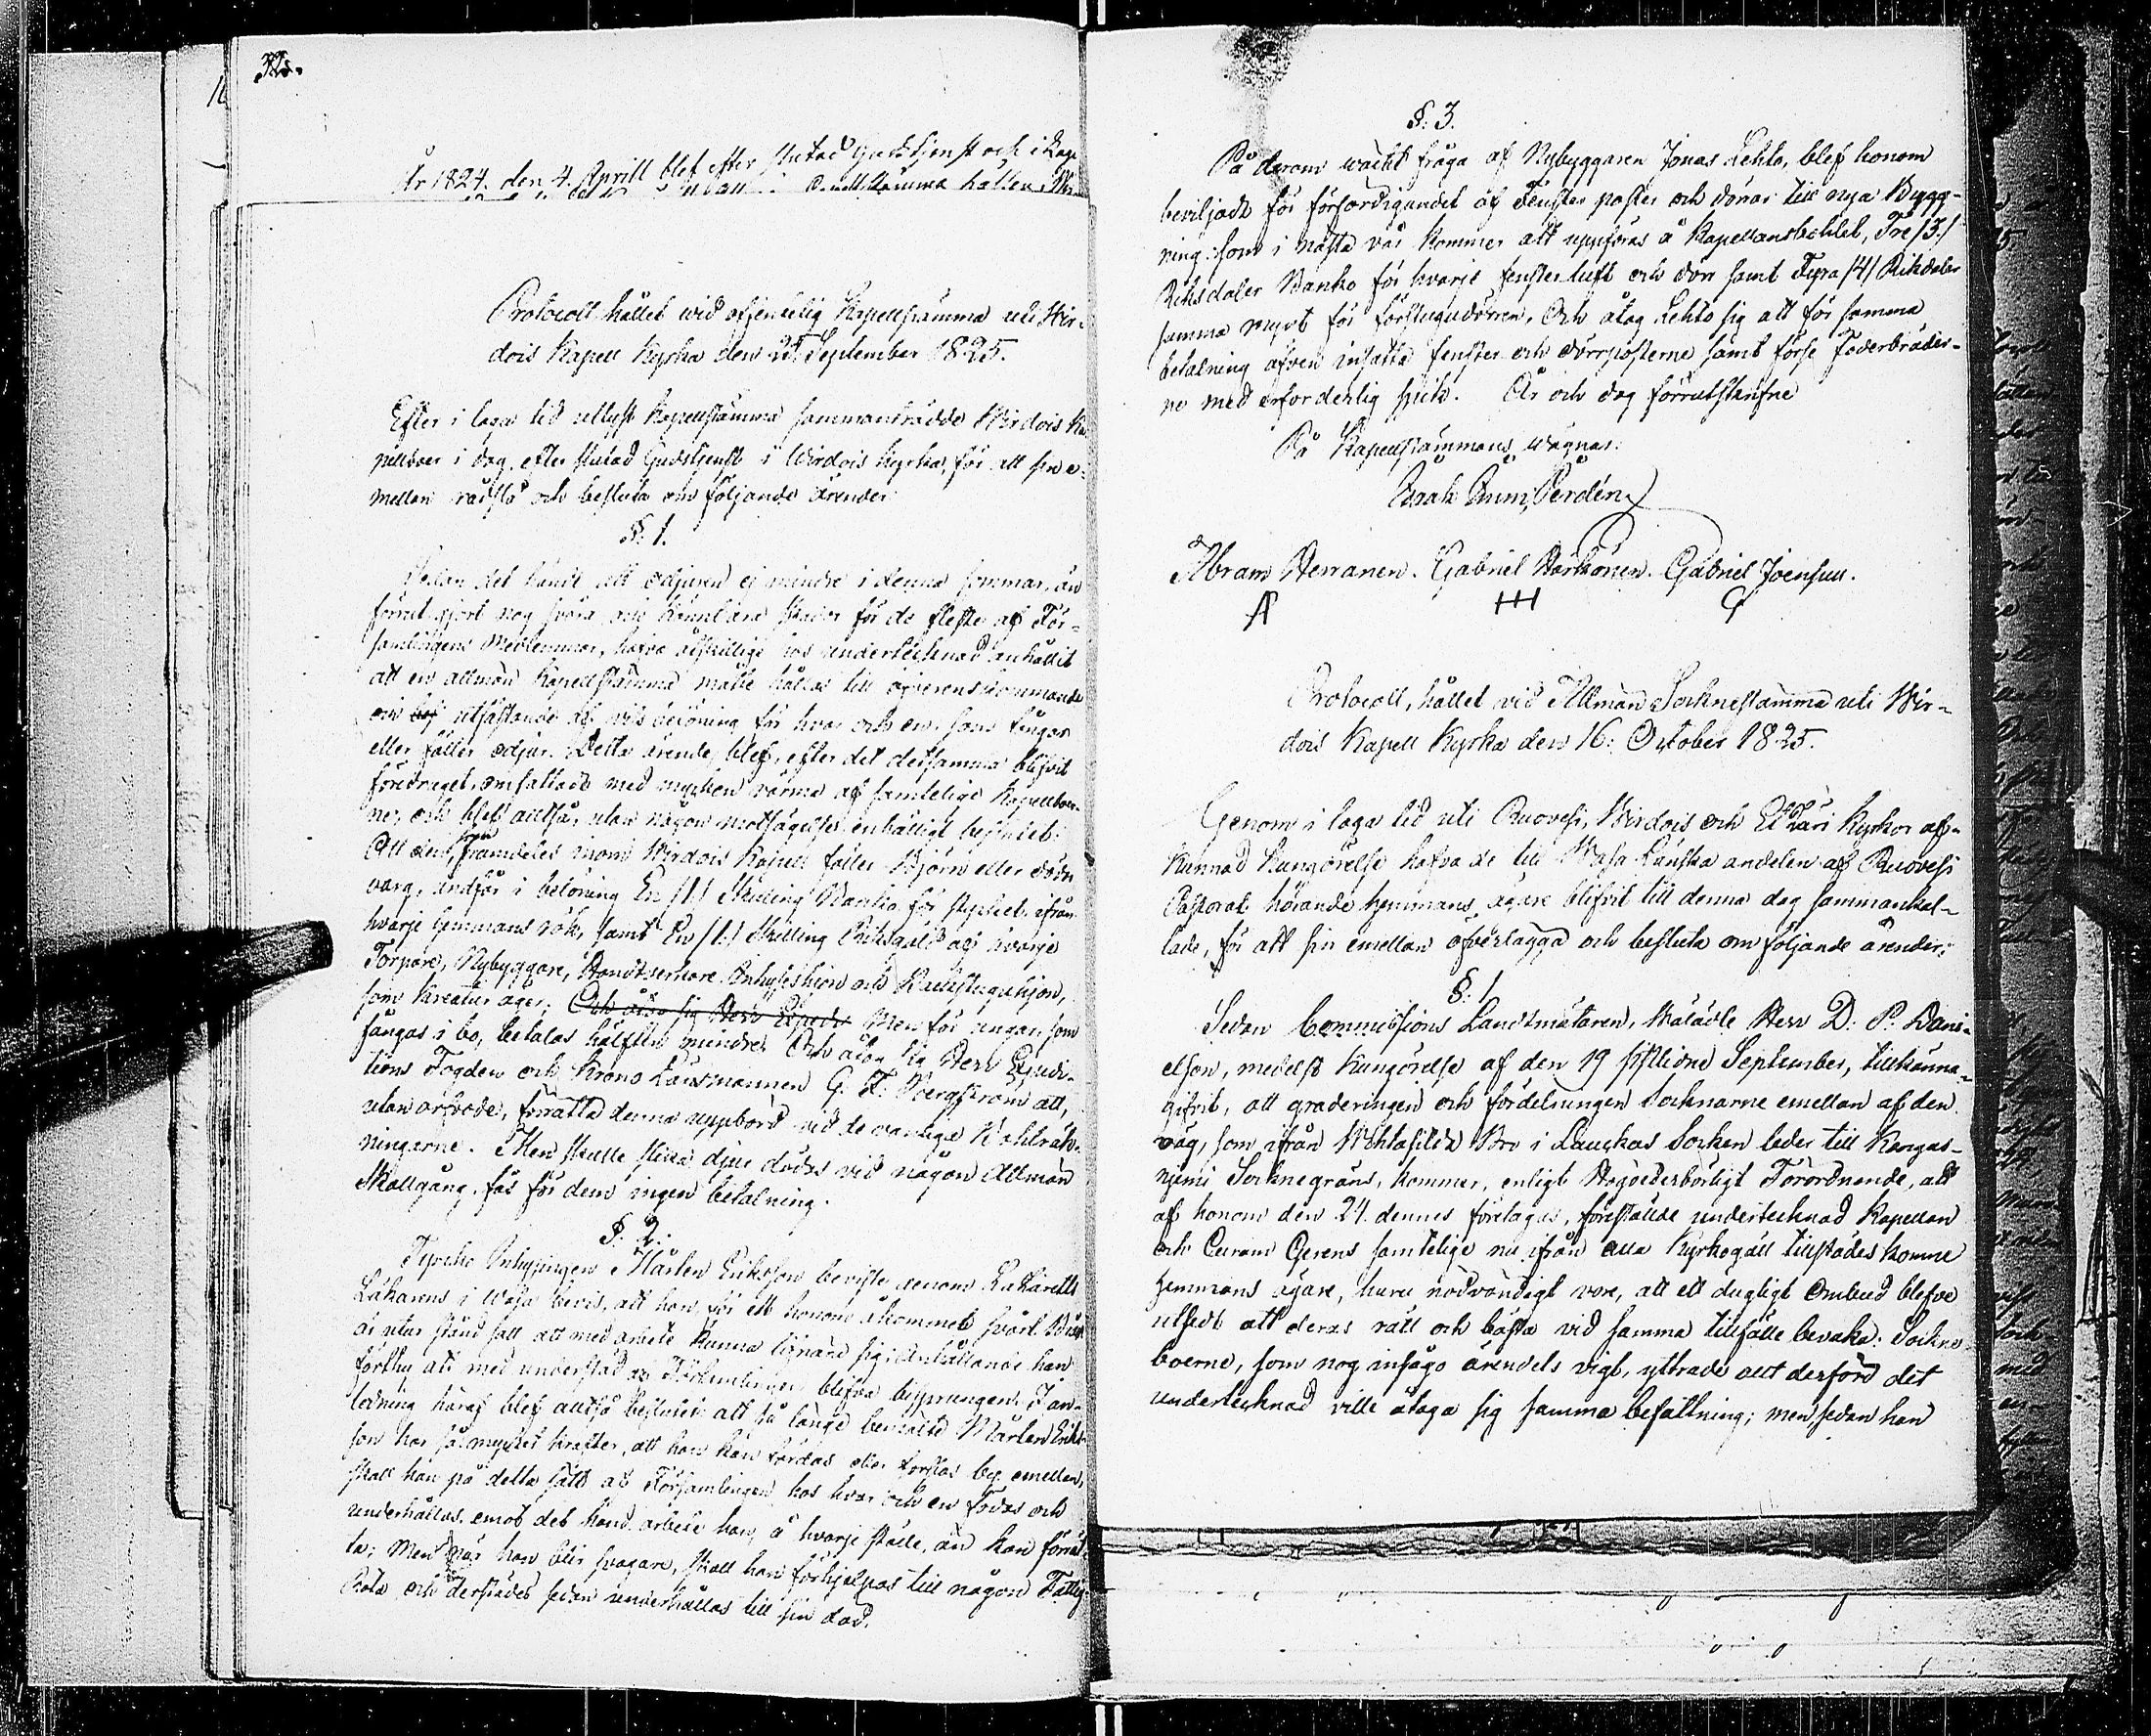 32.
År 1824. den 4. Aprill blef efter slutad Gudstjenst och i laga
Protocoll hållet wid offentelig Kapellstämma uti Wir-
dois Kapell Kyrka den 25. September 1825.
Efter i laga tid utlyst Kapellstämma sammanträdde Wirdois Ka-
pellboer i dag efter slutad Gudstjenst i Wirdois Kyrka, för att sin e-
mellan rådslå och besluta om följande ärender:
§. 1.
Sedan det händt att odjuren ej mindre i denna sommar, än
förrut gjort nog svåra och känbara skador för de fleste af För-
samlingens Medlemmar, hafva åtskillige hos undertecknad anhållit
att en allmän Kapellstämma måtte hållas till öfverenskommande
om utfästande af viss belöning för hvar och en som fångar
eller fäller odjur. Detta ärende blef, efter det detsamma blifvit
föredraget, omfattadt med mycken värma af samtelige Kapellboer-
ne, och blef altså, utan någon motsägelse enhälligt beslutet:
Att den, som framdeles inom Wirdois Kapell fäller Björn eller döda
varg, undfår i belöning En /1/ Skilling Banko för stycket ifrån
hvarje Hemmans rök, samt En /1/ Skilling Riksgäld af hvarje
Torpare, Nybyggare, Handtverkare Inhysehion och Backstuguhjon,
som Kreatur äger; Och åtog sig Herr Expedi Men för ungar som
fångas i bo, betalas hälften mindre. Och åtog sig Herr Expedi-
tions Fogden och Krono Länsmannen G. F. Bergström att,
utan arfvode, förrätta denna uppbörd vid de vanliga Kohlräk-
ningarne. Men skulle slika djur dödas vid någon Allmän
Skallgång, fås för dem ingen betalning.
§. 2.
Inhysingen Mårten Eriksson beviste genom Lazaretts
Läkarens i Wasa bevis, att han för ett honom åkommet svårt Bråk
är utur stånd satt att med arbete kunna lifnära sig; Anhållande han
förthy att med understöd af Församlingen blefva bisprungen. I an-
ledning häraf blef altså beslutet: att så länge bemälte Mårten Eriks-
son har så mycket krafter, att han kan färdas eller forslas by emellan,
skall han på detta sätt af Församlingen hos hvar och en födas och
underhållas emot det hand arbete han, å hvarje ställe, än kan förrät-
ta; Men när han blir svagare, skall han förhjelpas till någon Fattig
Rota och derstädes sedan underhållas till sin död.
§. 3.
På derom wäckt fråga af Nybyggaren Jonas Lehto, blef honom
beviljadt för förfärdigandet af Fenster poster och dörrar till nya Bygg-
ning som i nästa vår kommer att uppföras å Kapellansbohlet, Tre /3/
Riksdaler Banko för hvarje fensterluft och dörr samt Fyra /4/ Riksdaler
samma mynt för förstugudörren, Och åtog Lehto sig att för samma
betalning äfven insätta fenster och dörrposterne samt förse Foderbräder-
ne med erforderlig spik. År och dag förrutskrifne
På Kapellstämmans wägnar:
Abram Herranen. Gabriel Härkönen. Gabriel Joensuu.
Protocoll, hållet vid Allmän Socknestämma uti Wir-
dois Kapell Kyrka den 16. October 1825.
Genom i laga tid uti Ruovesi, Wirdois och Etzäri Kyrkor af-
kunnad Kungörelse hafva de till Wasa Länska andelen af Ruovesi
Pastorat hörande Hemmans ägare blifvit till denna dag sammankal-
lade, för att sin emellan öfverlägga och besluta om följande ärender:
§. 1
Sedan Commissions Landtmätaren, Wälädle Herr D. P. Dani-
elson, medelst Kungörelse af den 19 sistlidne September, tillkänna-
gifvit, att graderingen och fördelningen Socknarne emellan af den
väg, som ifrån Bro i Laukas Socken leder till Kangas-
njemi Sockne gräns, kommer, enligt Högvederbörligt Förordnande, att
af honom den 24. dennes företagas, föreställde undertecknad Kapellan
och Curam Gerens samtelige nu ifrån alla Kyrkogäll tillstädes komne
Hemmans ägare, huru nödvändigt vore, att ett dugligt Ombud blefve
utsedt att deras rätt och bästa vid samma tillfälle bevaka. Sockne-
boerne, som nog insågo ärendets vigt, yttrade att derförd det
undertecknad ville åtaga sig samma befattning; men sedan han